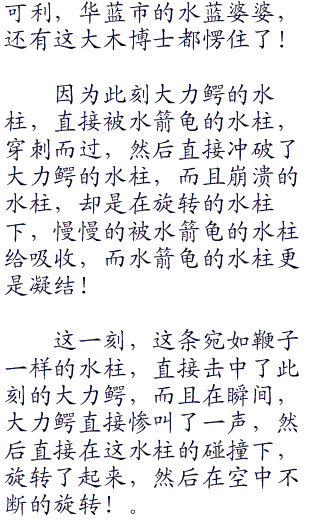 可利，华蓝市的水蓝婆婆，
还有这大木博士都愣住了！
因为此刻大力鳄的水
柱，直接被水箭龟的水柱，
穿刺而过，然后直接冲破了
大力鳄的水柱，而且崩溃的
水柱，却是在旋转的水柱
下，慢慢的被水箭龟的水柱
给吸收，而水箭龟的水柱更
是凝结！
这一刻，这条宛如鞭子
一样的水柱，直接击中了此
刻的大力鳄，而且在瞬间，
大力鳄直接惨叫了一声，然
后直接在这水柱的碰撞下，
旋转了起来，然后在空中不
断的旋转！。